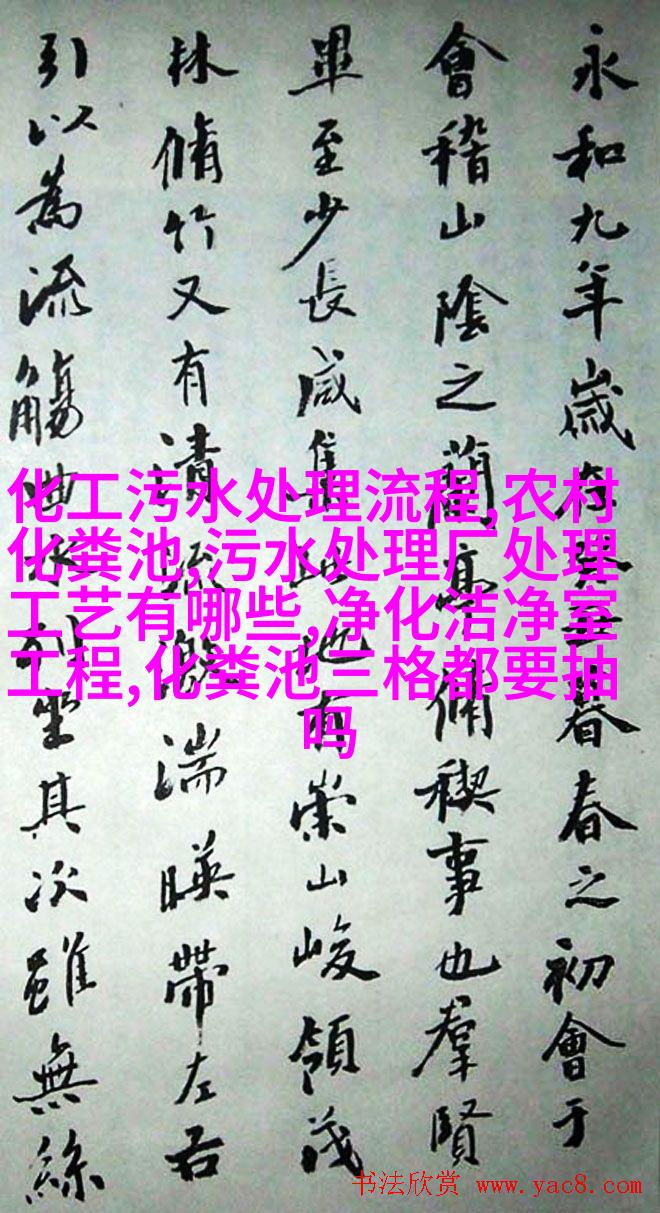 永和九年歲在癸丑暮春之初會于
會稽山陰之蘭亭脩稧事也羣賢
畢至少長咸集此地有崇山峻領茂
林脩竹又有清流激湍暎帶左右
引以為流觴曲水列坐其次雖無絲
化工污水处理流程,农村
化粪池,污水处理厂处理
工艺有哪些,净化洁净室
工程,化粪池三格都要抽
吗
书法欣赏 www.yac8.com